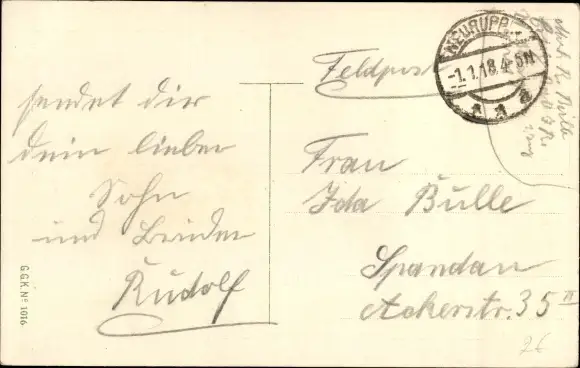 sendet dir
dein lieber
Sohn
und Bruder
Rudolf
G.G.K. Nº 1016
Feldpost
NEURUPPIN
-1.1.18.4-5N
* a a
Frau
Ida Bulle
Spandau
Ackerstr. 35 III
26